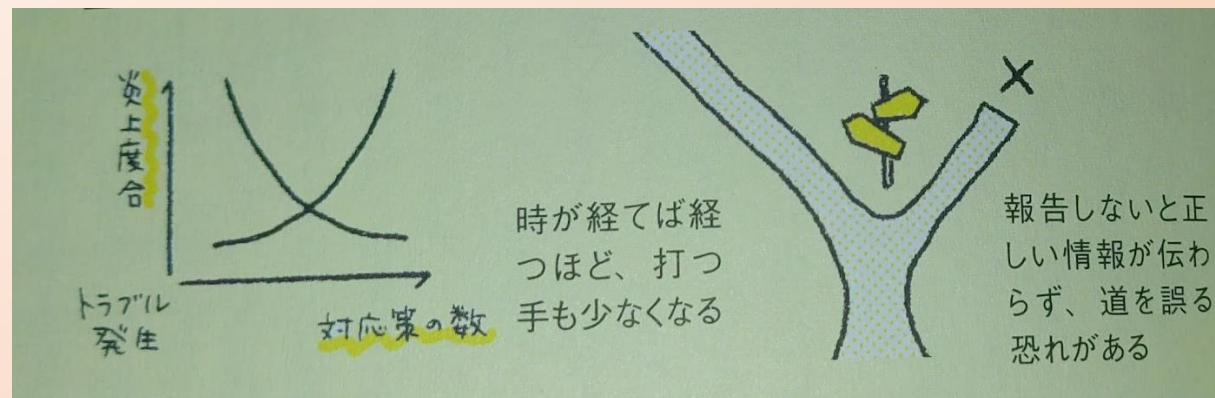 炎上度合
トラブル
発生
対応策の数
時が経てば経
つほど、打つ
手も少なくなる
報告しないと正
しい情報が伝わ
らず、道を誤る
恐れがある